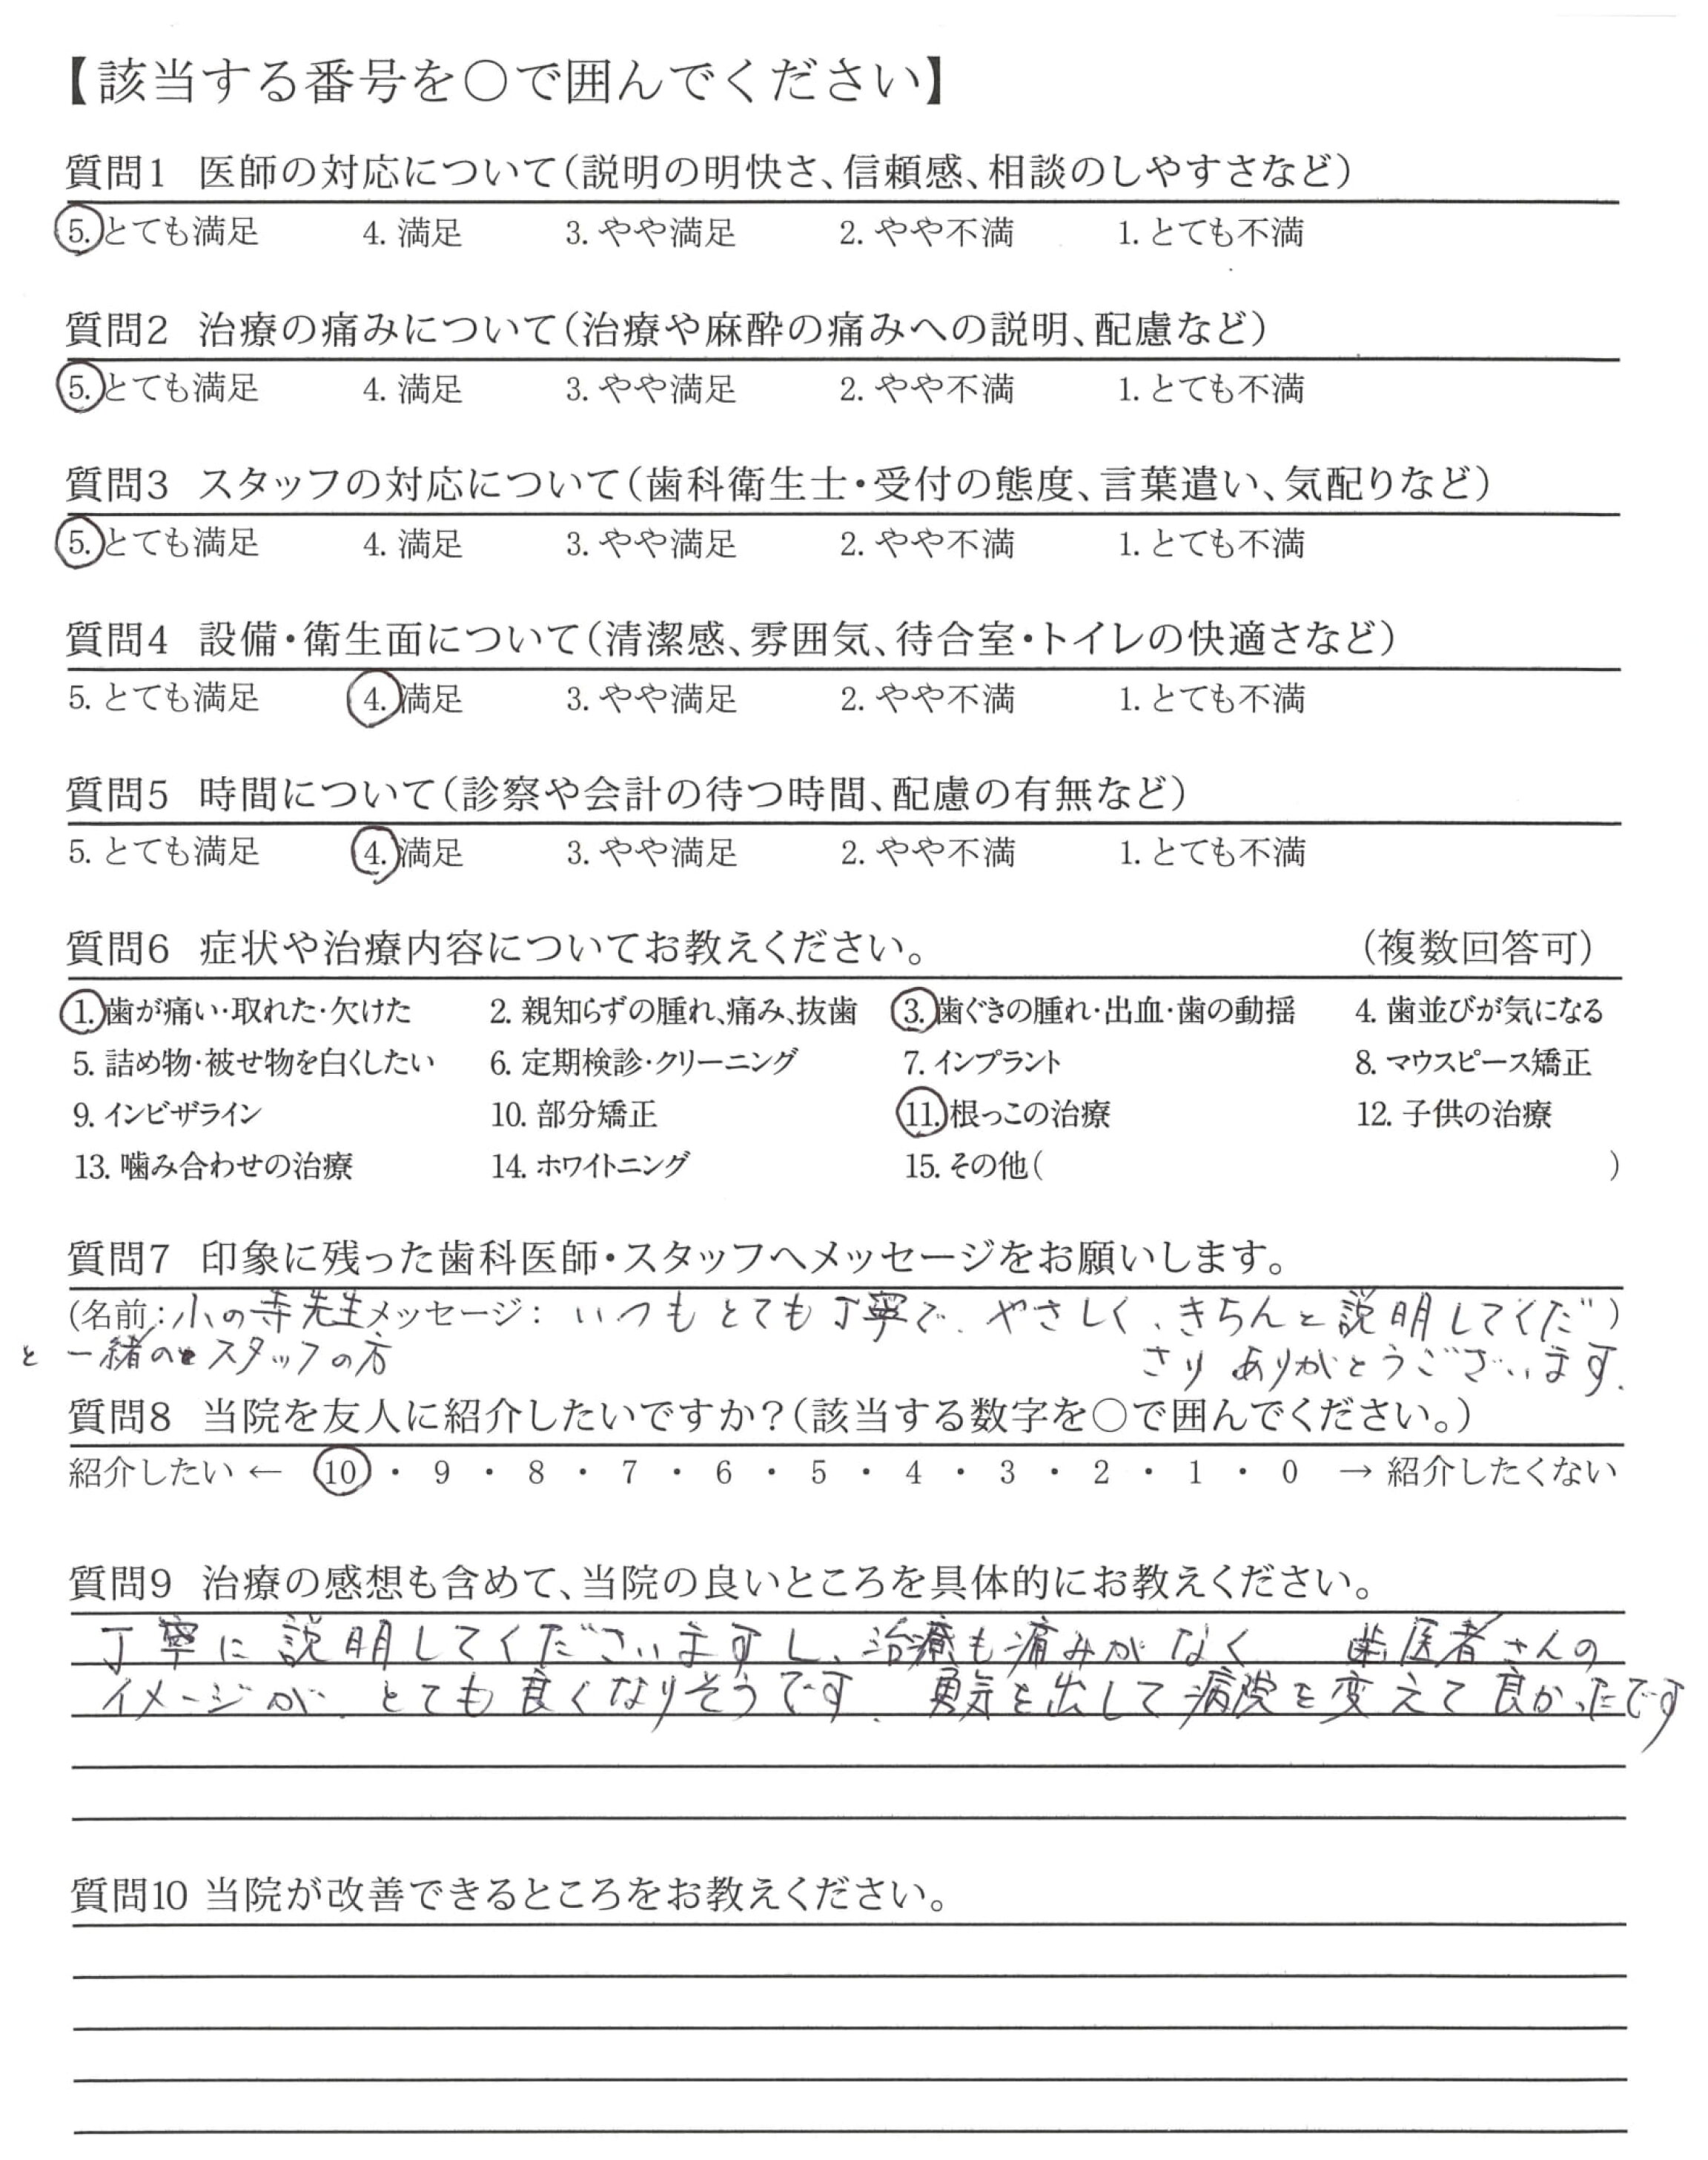 【該当する番号を○で囲んでください】
質問1 医師の対応について(説明の明快さ、信頼感、相談のしやすさなど)
5. とても満足 4. 満足 3. やや満足 2. やや不満 1. とても不満
質問2 治療の痛みについて(治療や麻酔の痛みへの説明、配慮など)
5. とても満足 4. 満足 3. やや満足 2. やや不満 1. とても不満
質問3 スタッフの対応について(歯科衛生士・受付の態度、言葉遣い、気配りなど)
5. とても満足 4. 満足 3. やや満足 2. やや不満 1. とても不満
質問4 設備・衛生面について(清潔感、雰囲気、待合室・トイレの快適さなど)
5. とても満足 4. 満足 3. やや満足 2. やや不満 1. とても不満
質問5 時間について(診察や会計の待つ時間、配慮の有無など)
5. とても満足 4. 満足 3. やや満足 2. やや不満 1. とても不満
質問6 症状や治療内容についてお教えください。 (複数回答可)
1. 歯が痛い・取れた・欠けた 2. 親知らずの腫れ、痛み、抜歯 3. 歯ぐきの腫れ・出血・歯の動揺 4. 歯並びが気になる
5. 詰め物・被せ物を白くしたい 6. 定期検診・クリーニング 7. インプラント 8. マウスピース矯正
9. インビザライン 10. 部分矯正 11. 根っこの治療 12. 子供の治療
13. 噛み合わせの治療 14. ホワイトニング 15. その他( )
質問7 印象に残った歯科医師・スタッフへメッセージをお願いします。
(名前:小の寺先生 メッセージ: いつもとても丁寧で、やさしく、きちんと説明してくだ)
と一緒のスタッフの方 さりありがとうございます.
質問8 当院を友人に紹介したいですか?(該当する数字を○で囲んでください。)
紹介したい ← 10 ・ 9 ・ 8 ・ 7 ・ 6 ・ 5 ・ 4 ・ 3 ・ 2 ・ 1 ・ 0 → 紹介したくない
質問9 治療の感想も含めて、当院の良いところを具体的にお教えください。
丁寧に説明してくださいますし、治療も痛みがなく 歯医者さんの
イメージが、とても良くなりそうです. 勇気を出して病院を変えて良かったです
質問10 当院が改善できるところをお教えください。